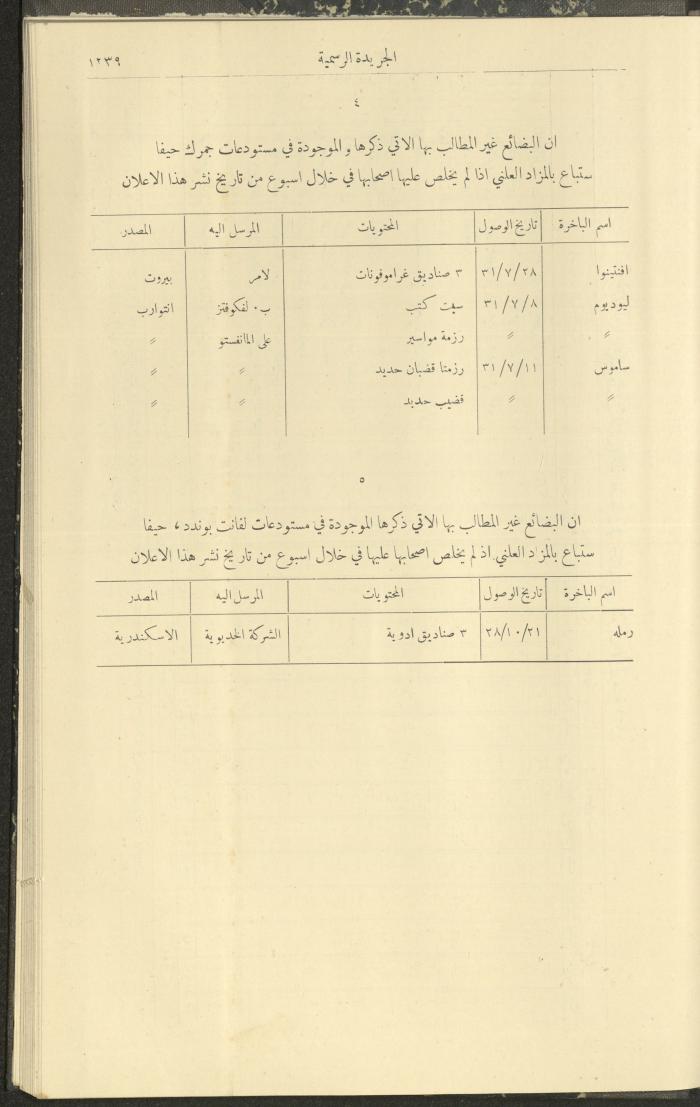 الجريدة الرسمية ١٢٣٩
٤
ان البضائع غير المطالب بها الاتي ذكرها والموجودة في مستودعات جمرك حيفا
ستباع بالمزاد العلني اذا لم يخلص عليها اصحابها في خلال اسبوع من تاريخ نشر هذا الاعلان
اسم الباخرة تاريخ الوصول المحتويات المرسل اليه المصدر
افنتينوا ٣١/٧/٢٨ ٣ صناديق غراموفونات لامر بيروت
ليوديوم ٣١/٧/٨ سبت كتب ب٠ لفكوفتز انتوارب
〃 〃 رزمة مواسير على المانفستو 〃
ساموس ٣١/٧/١١ رزمتا قضبان حديد 〃 〃
〃 〃 قضيب حديد 〃 〃
٥
ان البضائع غير المطالب بها الاتي ذكرها الموجودة في مستودعات لفانت بوندد، حيفا
ستباع بالمزاد العلني اذ لم يخلص اصحابها عليها في خلال اسبوع من تاريخ نشر هذا الاعلان
اسم الباخرة تاريخ الوصول المحتويات المرسل اليه المصدر
رمله ٢٨/١٠/٢١ ٣ صناديق ادوية الشركة الخديوية الاسكندرية